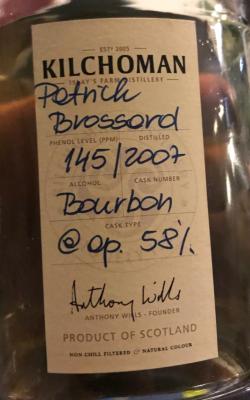 EST 2005
KILCHOMAN
ISLAY'S FARM DISTILLERY
Patrick
Brossard
PHENOL LEVEL (PPM) DISTILLED
145/2007
ALCOHOL CASK NUMBER
Bourbon
CASK TYPE
@ ap. 58%.
Anthony Wills
ANTHONY WILLS - FOUNDER
PRODUCT OF SCOTLAND
NON CHILL FILTERED & NATURAL COLOUR